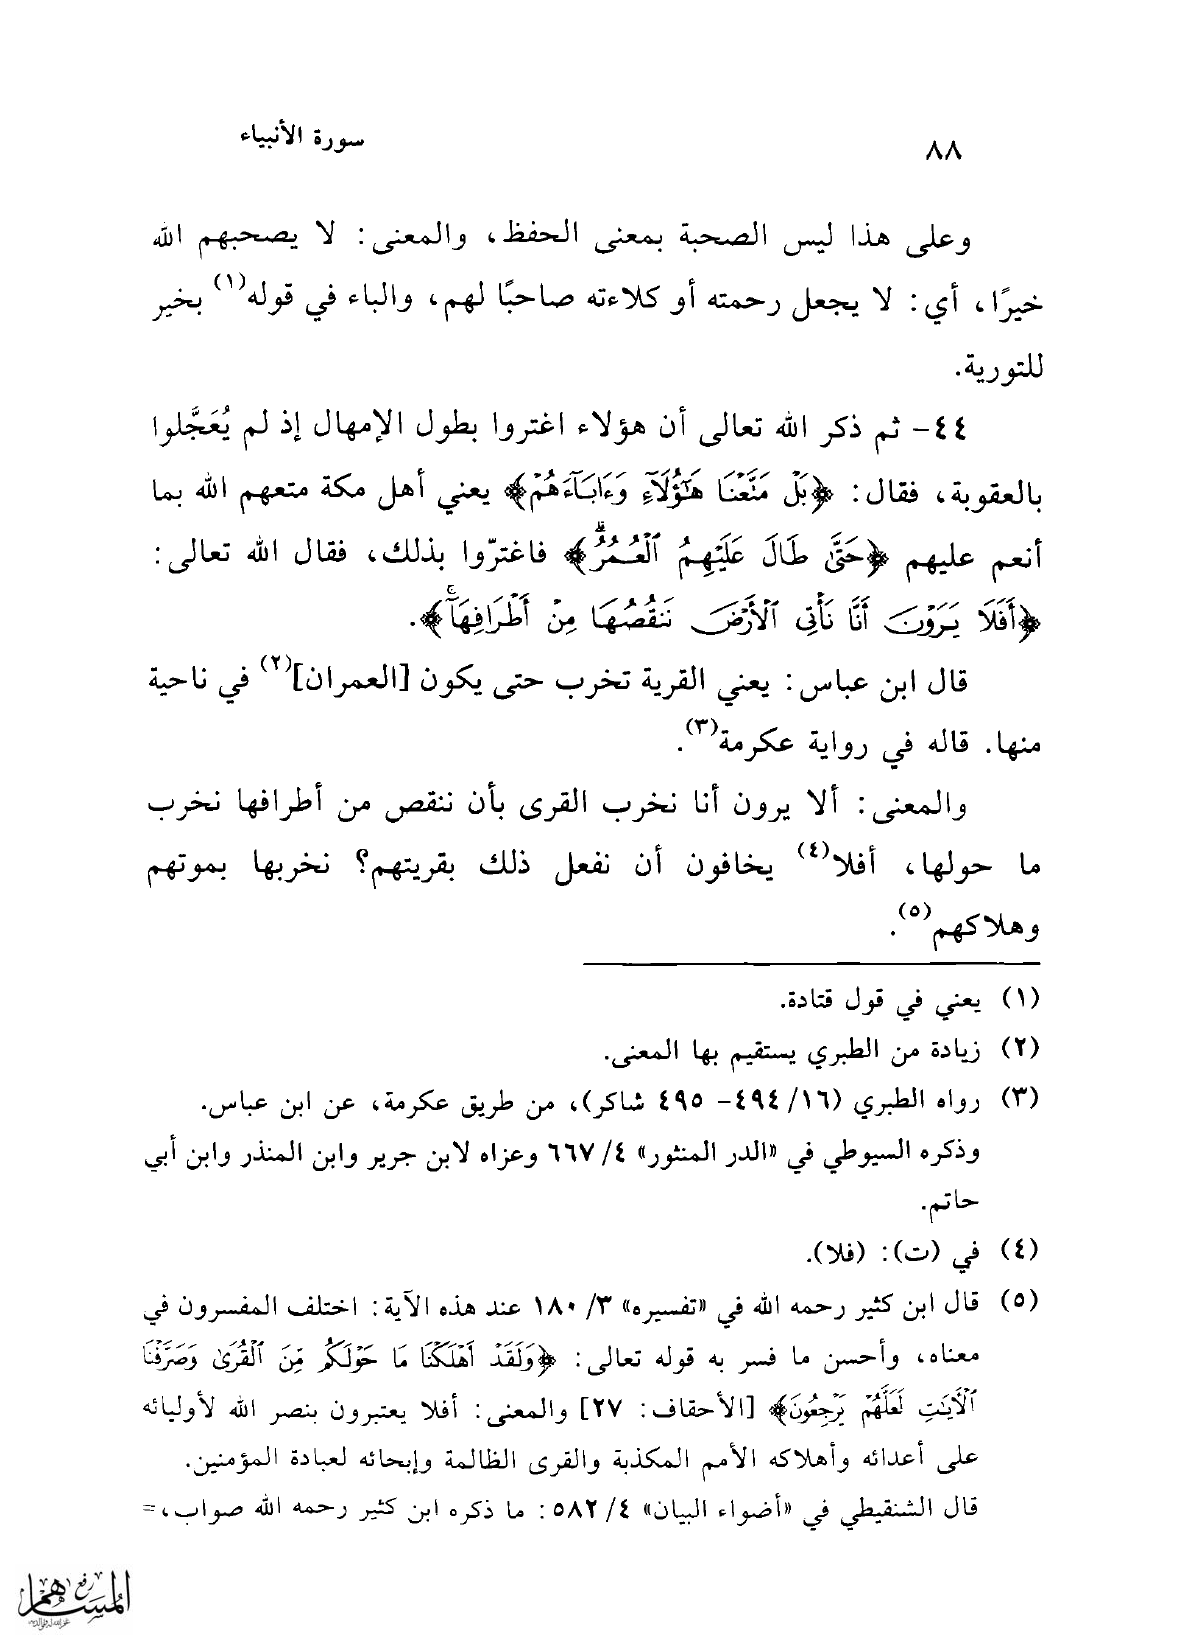 ٨٨
سورة الأنبياء
وعلى هذا ليس الصحبة بمعنى الحفظ، والمعنى: لا يصحبهم الله
خيرًا، أي: لا يجعل رحمته أو كلاءته صاحبًا لهم، والباء في قوله(١) بخير
للتورية.
٤٤- ثم ذكر الله تعالى أن هؤلاء اغتروا بطول الإمهال إذ لم يُعَجَّلوا
بالعقوبة، فقال: ﴿بَلْ مَتَّعْنَا هَٰٓؤُلَآءِ وَءَابَآءَهُمْ﴾ يعني أهل مكة متعهم الله بما
أنعم عليهم ﴿حَتَّىٰ طَالَ عَلَيْهِمُ ٱلْعُمُرُ ۗ﴾ فاغترّوا بذلك، فقال الله تعالى:
﴿أَفَلَا يَرَوْنَ أَنَّا نَأْتِى ٱلْأَرْضَ نَنقُصُهَا مِنْ أَطْرَافِهَآ ۚ﴾.
قال ابن عباس: يعني القرية تخرب حتى يكون [العمران](٢) في ناحية
منها. قاله في رواية عكرمة(٣).
والمعنى: ألا يرون أنا نخرب القرى بأن ننقص من أطرافها نخرب
ما حولها، أفلا(٤) يخافون أن نفعل ذلك بقريتهم؟ نخربها بموتهم
وهلاكهم(٥).
(١) يعني في قول قتادة.
(٢) زيادة من الطبري يستقيم بها المعنى.
(٣) رواه الطبري (١٦/ ٤٩٤- ٤٩٥ شاكر)، من طريق عكرمة، عن ابن عباس.
وذكره السيوطي في «الدر المنثور» ٤/ ٦٦٧ وعزاه لابن جرير وابن المنذر وابن أبي
حاتم.
(٤) في (ت): (فلا).
(٥) قال ابن كثير رحمه الله في «تفسيره» ٣/ ١٨٠ عند هذه الآية: اختلف المفسرون في
معناه، وأحسن ما فسر به قوله تعالى: ﴿وَلَقَدْ أَهْلَكْنَا مَا حَوْلَكُم مِّنَ ٱلْقُرَىٰ وَصَرَّفْنَا
ٱلْءَايَٰتِ لَعَلَّهُمْ يَرْجِعُونَ﴾ [الأحقاف: ٢٧] والمعنى: أفلا يعتبرون بنصر الله لأوليائه
على أعدائه وأهلاكه الأمم المكذبة والقرى الظالمة وإبحائه لعبادة المؤمنين.
قال الشنقيطي في «أضواء البيان» ٤/ ٥٨٢: ما ذكره ابن كثير رحمه الله صواب، =